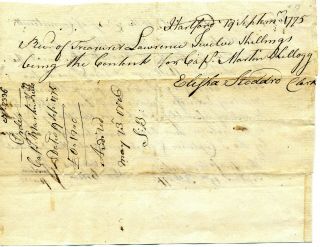 Hartford 19 Septemr 1775
Recd of Treasurer Lawrence Twelve Shillings
being the Contents for Capt Martin Kellogg
Elisha Stoddro Clark
Order
Capt Martin Kellogg
Dated 19 Sept 1775
£0..12..0
May 15th 1776